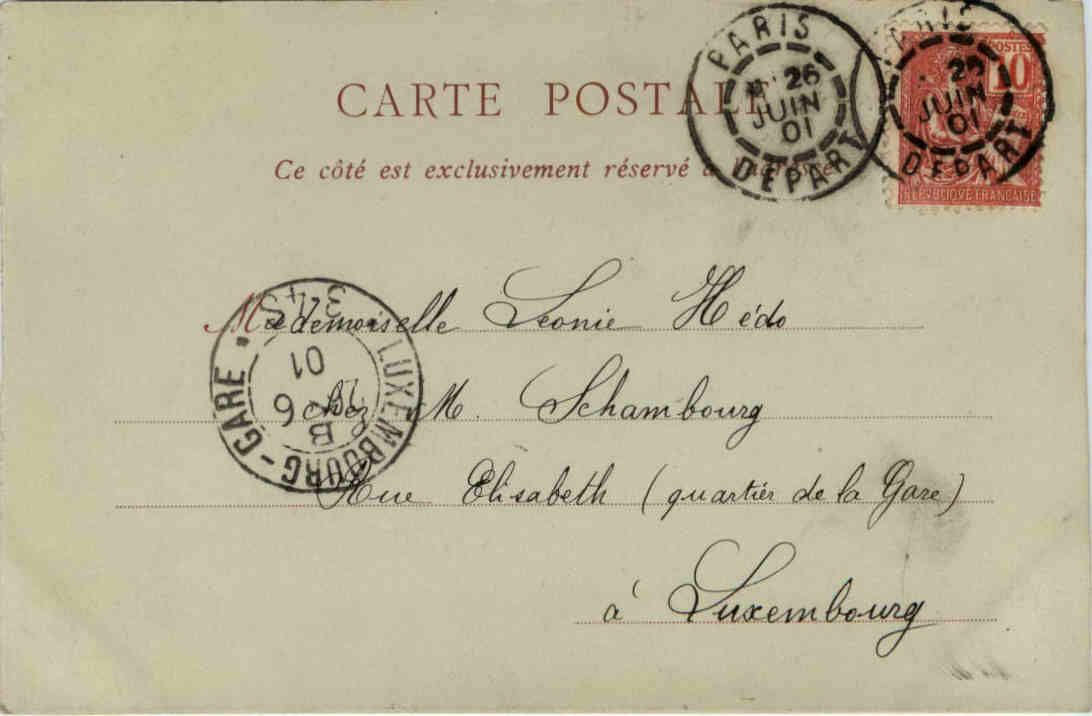 CARTE POSTALE
Ce côté est exclusivement réservé à l'adresse
PARIS
26
JUIN
01
DEPART
PARIS
26
JUIN
01
DEPART
POSTES
10
REPVBLIQVE FRANÇAISE
Mademoiselle Leonie Hédo
chez M. Schambourg
Rue Elisabeth (quartier de la Gare)
à Luxembourg
LUXEMBOURG-GARE
3-4S
01
6
B